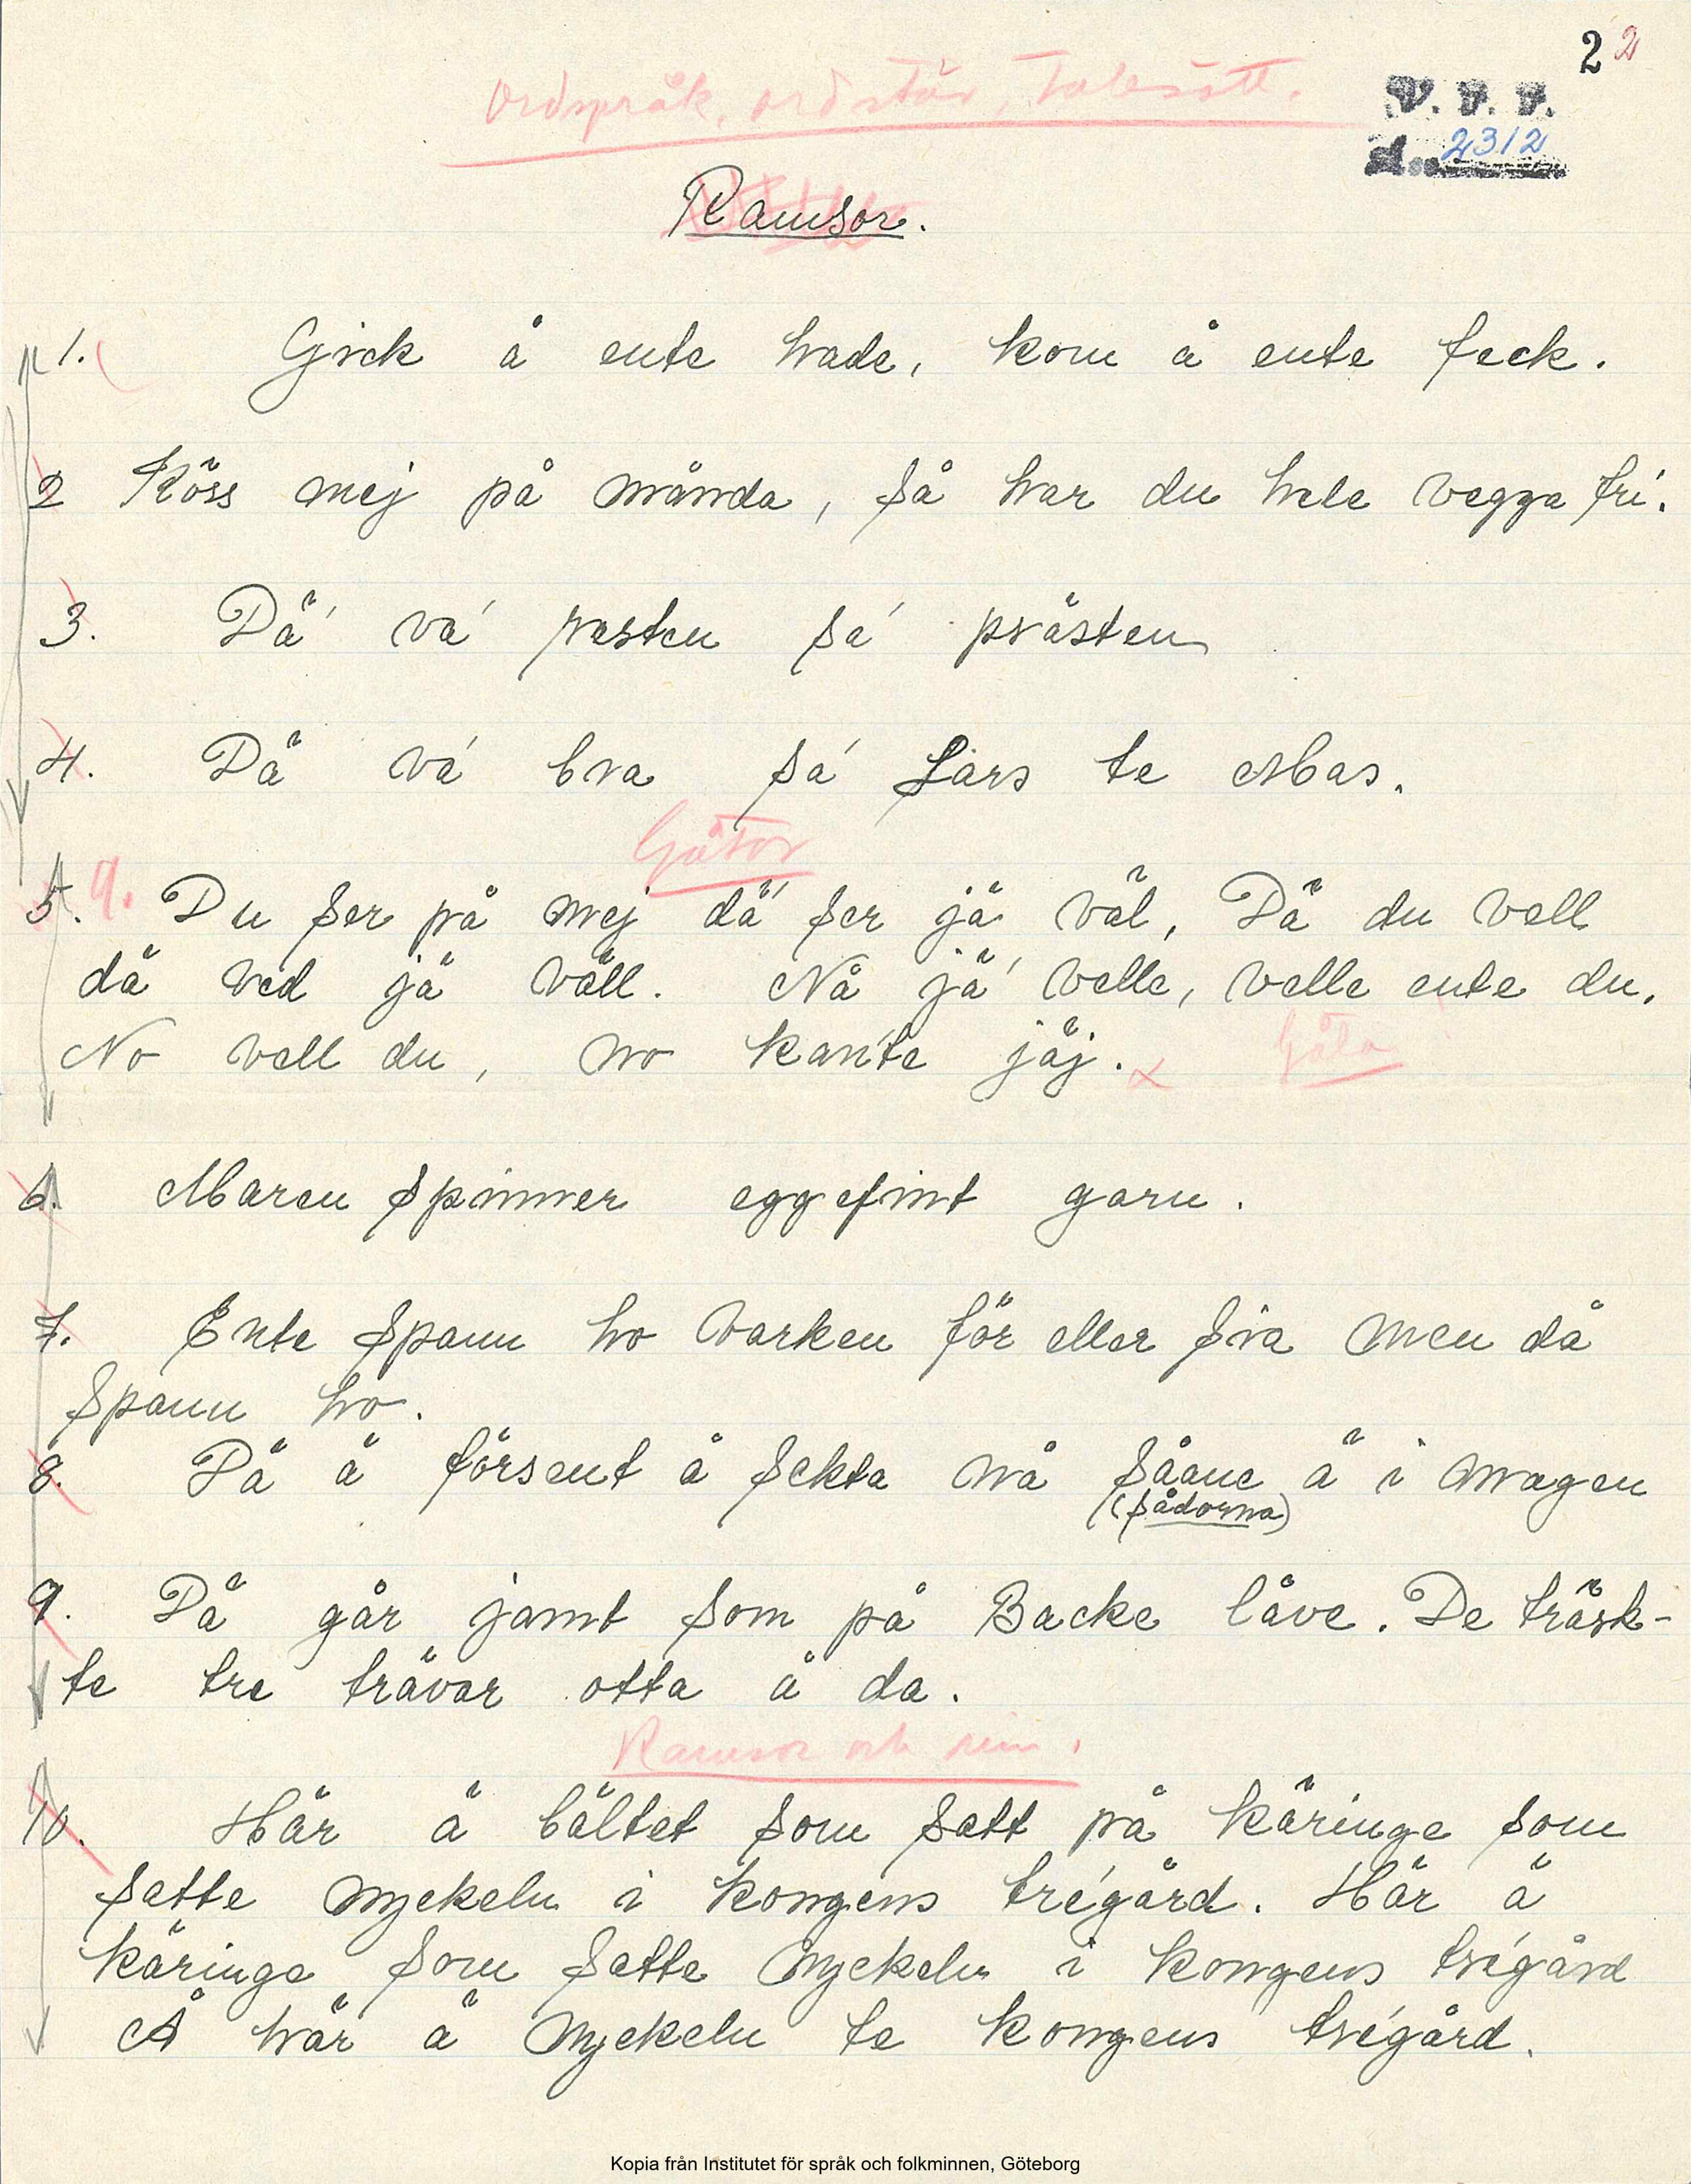 2 2
Ordspråk, ordstäv, Talesätt.
V. F. F.
2312
Ramsor.
1. Gick å ente hade, kom å ente feck.
2 Köss mej på månda, så har du hele vegga fri.
3. Dä' va' resten sa' prästen
4. Dä va' bra sa' Lars te Mas.
Gåtor
5. 9. Du ser på mej dä' ser jä väl, Dä du vell
dä ved jä väll. Nå jä' velle, velle ente du.
No vell du, no kan'te jäj. x Gåta
6. Maren spinner eggefint garn.
7. Ente spann ho varken för eller sia men då
spann ho.
8. Dä ä försent å sekta nå såane ä i magen
(sådorna)
9. Dä går jamt som på Backe låve. De trösk-
te tre trävar otta å da.
Ramsor och rim.
10. Här ä bältet som satt på käringe som
satte nyckeln i kongens tré'gård. Här ä
käringe som satte nyckeln i kongens trégård
Å här ä nyckeln te kongens trégård.
Kopia från Institutet för språk och folkminnen, Göteborg